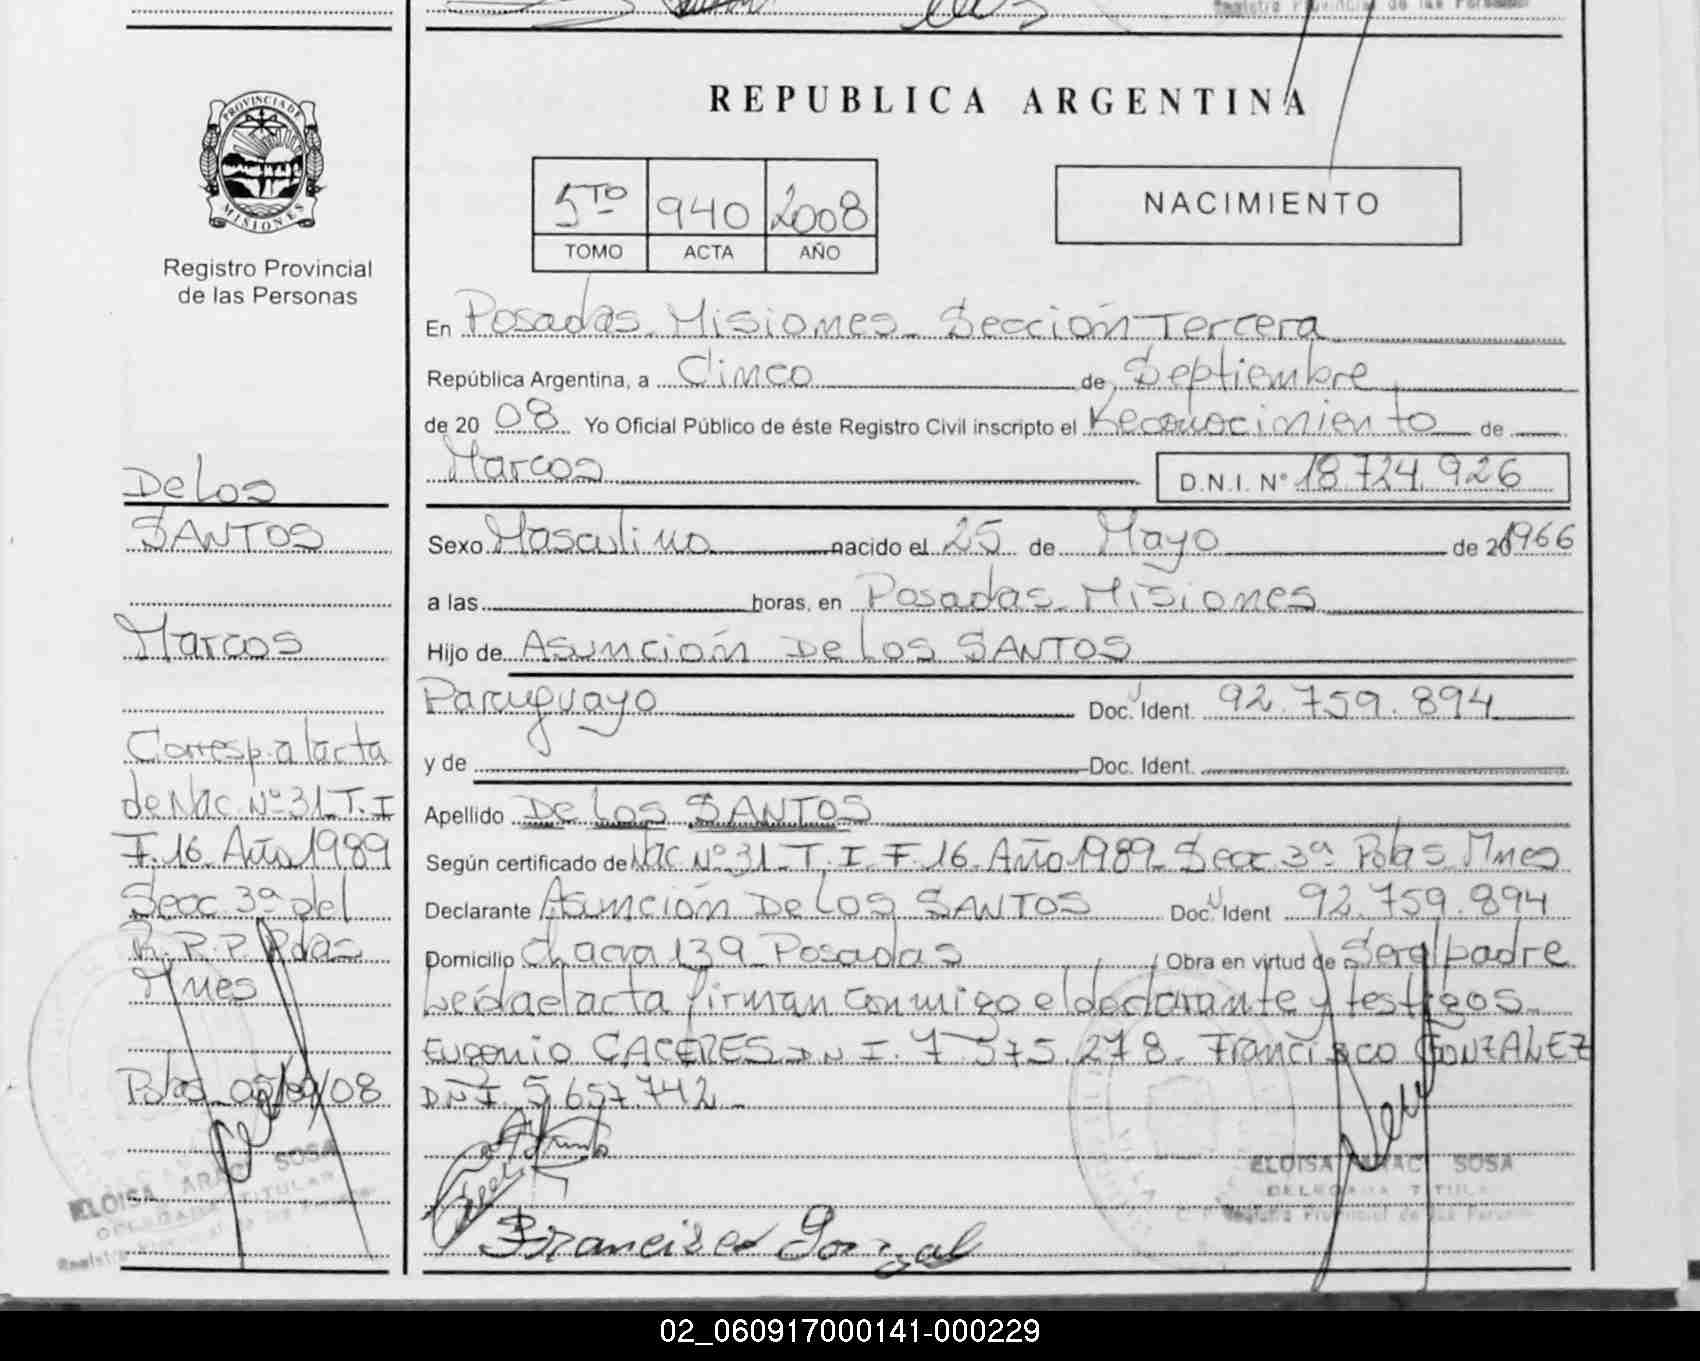 PROVINCIA DE
MISIONES
Registro Provincial
de las Personas
De Los
SANTOS
Marcos
Corresp. a l acta
de Nac. Nº 31 T. I
F. 16 Año 1989
Secc. 3ª del
R. P. P. Pdas
Mnes
Pdas 05/09/08
ELOISA ARACI SOSA
DELEGADA TITULAR
REPUBLICA ARGENTINA
5TO 940 2008
TOMO ACTA AÑO
NACIMIENTO
En Posadas Misiones Sección Tercera
República Argentina, a Cinco de Septiembre
de 20 08 Yo Oficial Público de éste Registro Civil inscripto el Reconocimiento de
Marcos D.N.I. Nº 18.724.926
Sexo Masculino nacido el 25 de Mayo de 20 1966
a las horas, en Posadas Misiones
Hijo de Asunción De Los SANTOS
Paraguayo Doc. Ident. 92.759.894
y de Doc. Ident.
Apellido De Los SANTOS
Según certificado de Nac Nº 31 T. I F. 16 Año 1989 Secc 3ª Pdas Mnes
Declarante Asunción De Los SANTOS Doc. Ident 92.759.894
Domicilio Chacra 139 Posadas Obra en virtud de Ser el padre
Leída el acta firman conmigo el declarante y testigos
Eugenio CACERES DNI. 7.575.278. Francisco GONZALEZ
DNI. 5.657.742
Francisco Gonzal
ELOISA ARACI SOSA
DELEGADA TITULAR
Registro Provincial de las Personas
02_060917000141-000229